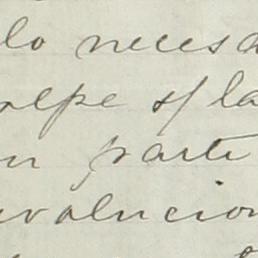 lo neces
olpe s/ la
en parte
evolucion